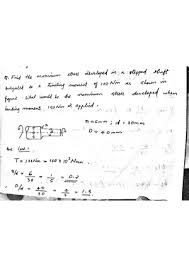 Q. Find the maximum stress developed in a stepped shaft
subjected to a twisting moment of 100 Nm as shown in
figure. What would be the maximum stress developed when
bending moment, 150 Nm is applied.
r = 6mm ; d = 30mm
D = 40mm
T = 100 Nm = 100 × 10³ Nmm
r/d = 6/30 = 1/5 = 0.2
D/d = 40/30 = 4/3 = 1.3